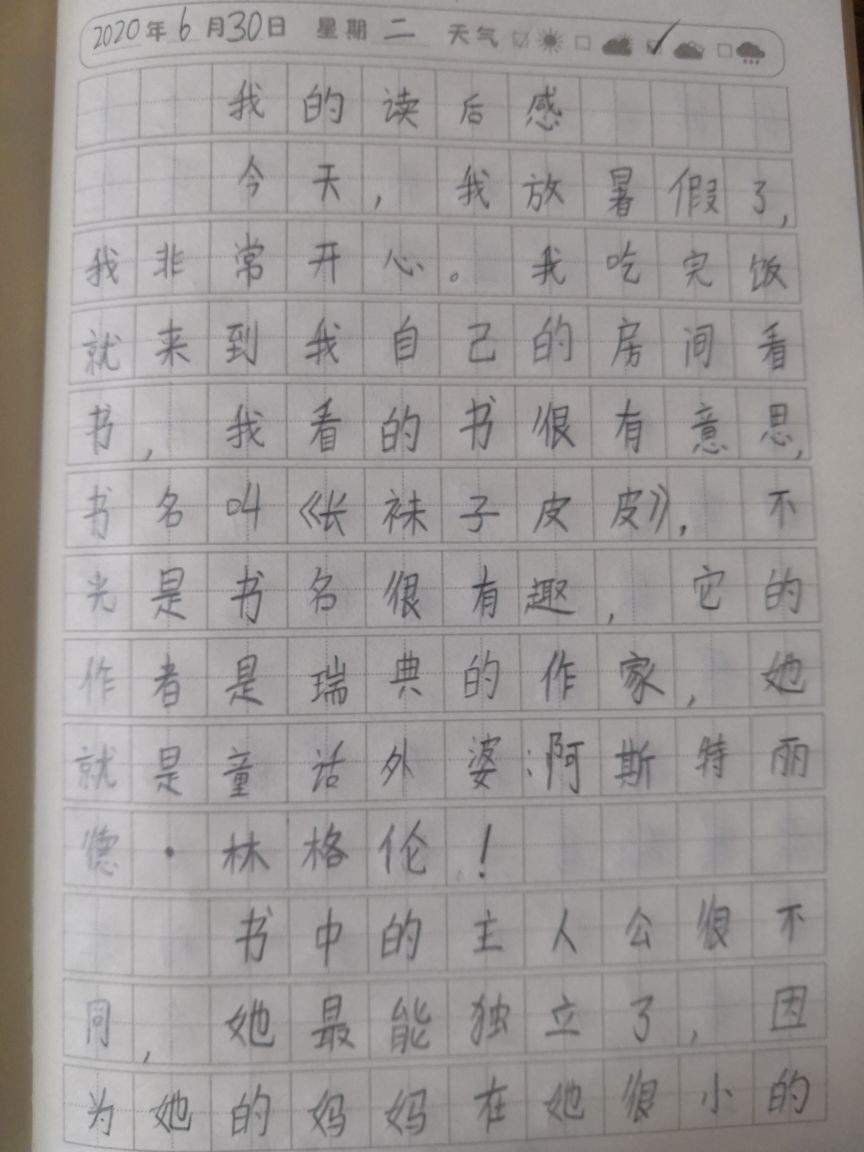 2020年6月30日 星期二 天气
我的读后感
今天，我放暑假了，
我非常开心。我吃完饭
就来到我自己的房间看
书，我看的书很有意思，
书名叫《长袜子皮皮》，不
光是书名很有趣，它的
作者是瑞典的作家，她
就是童话外婆：阿斯特丽
德·林格伦！
书中的主人公很不
同，她最能独立了，因
为她的妈妈在她很小的